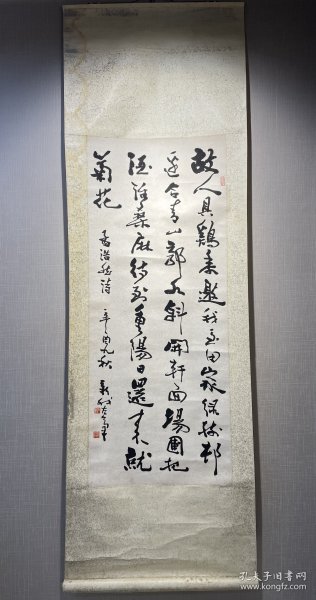 故人具鷄黍邀我至田家绿树村
边合青山郭外斜開軒面場圃把
酒话桑麻待到重陽日還来就
菊花
孟浩然诗 辛酉九秋 新我左笔
孔夫子旧书网
www.kongfz.com